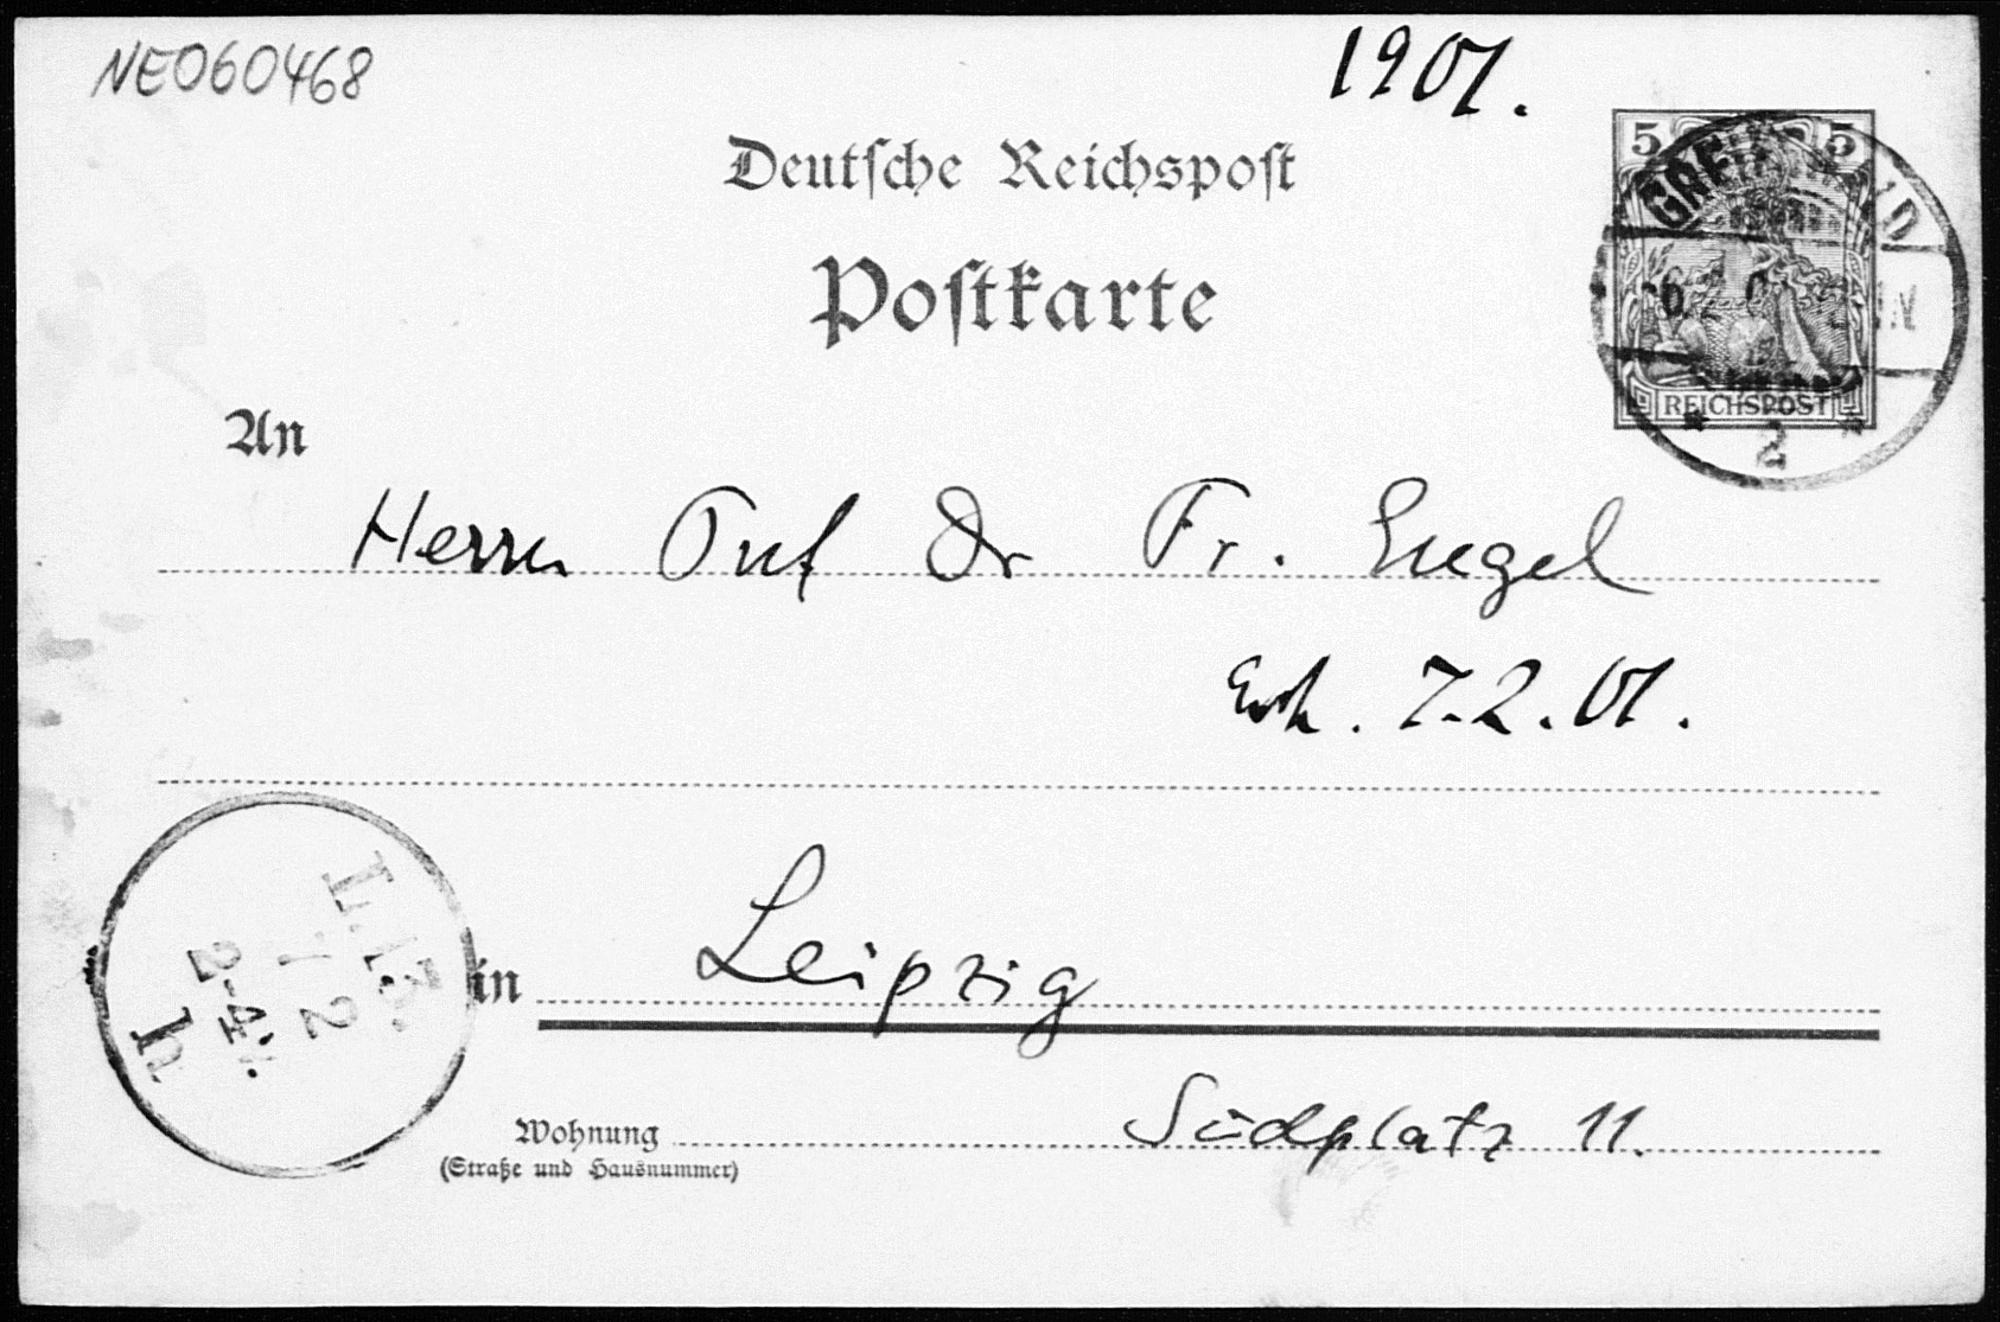 NE060468
1901.
Deutsche Reichspost
Postkarte
5 5
6.2.0
REICHSPOST
2
An
Herrn Prof Dr Fr. Engel
Erh. 7.2.01.
L.13.
7 2
2-4
in Leipzig
Wohnung Südplatz 11.
(Straße und Hausnummer)